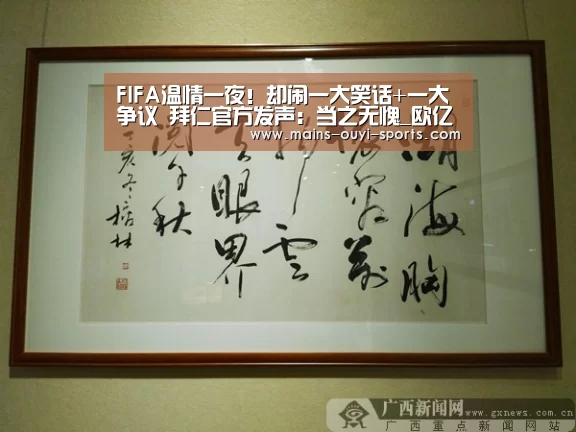 FIFA温情一夜！却闹一大笑话+一大
争议 拜仁官方发声：当之无愧_欧亿
www.mains-ouyi-sports.com
湖海胸
襟罗万
云
眼界
阅千秋
丁亥冬 榕林
广西新闻网
www.gxnews.com.cn
广西重点新闻网站